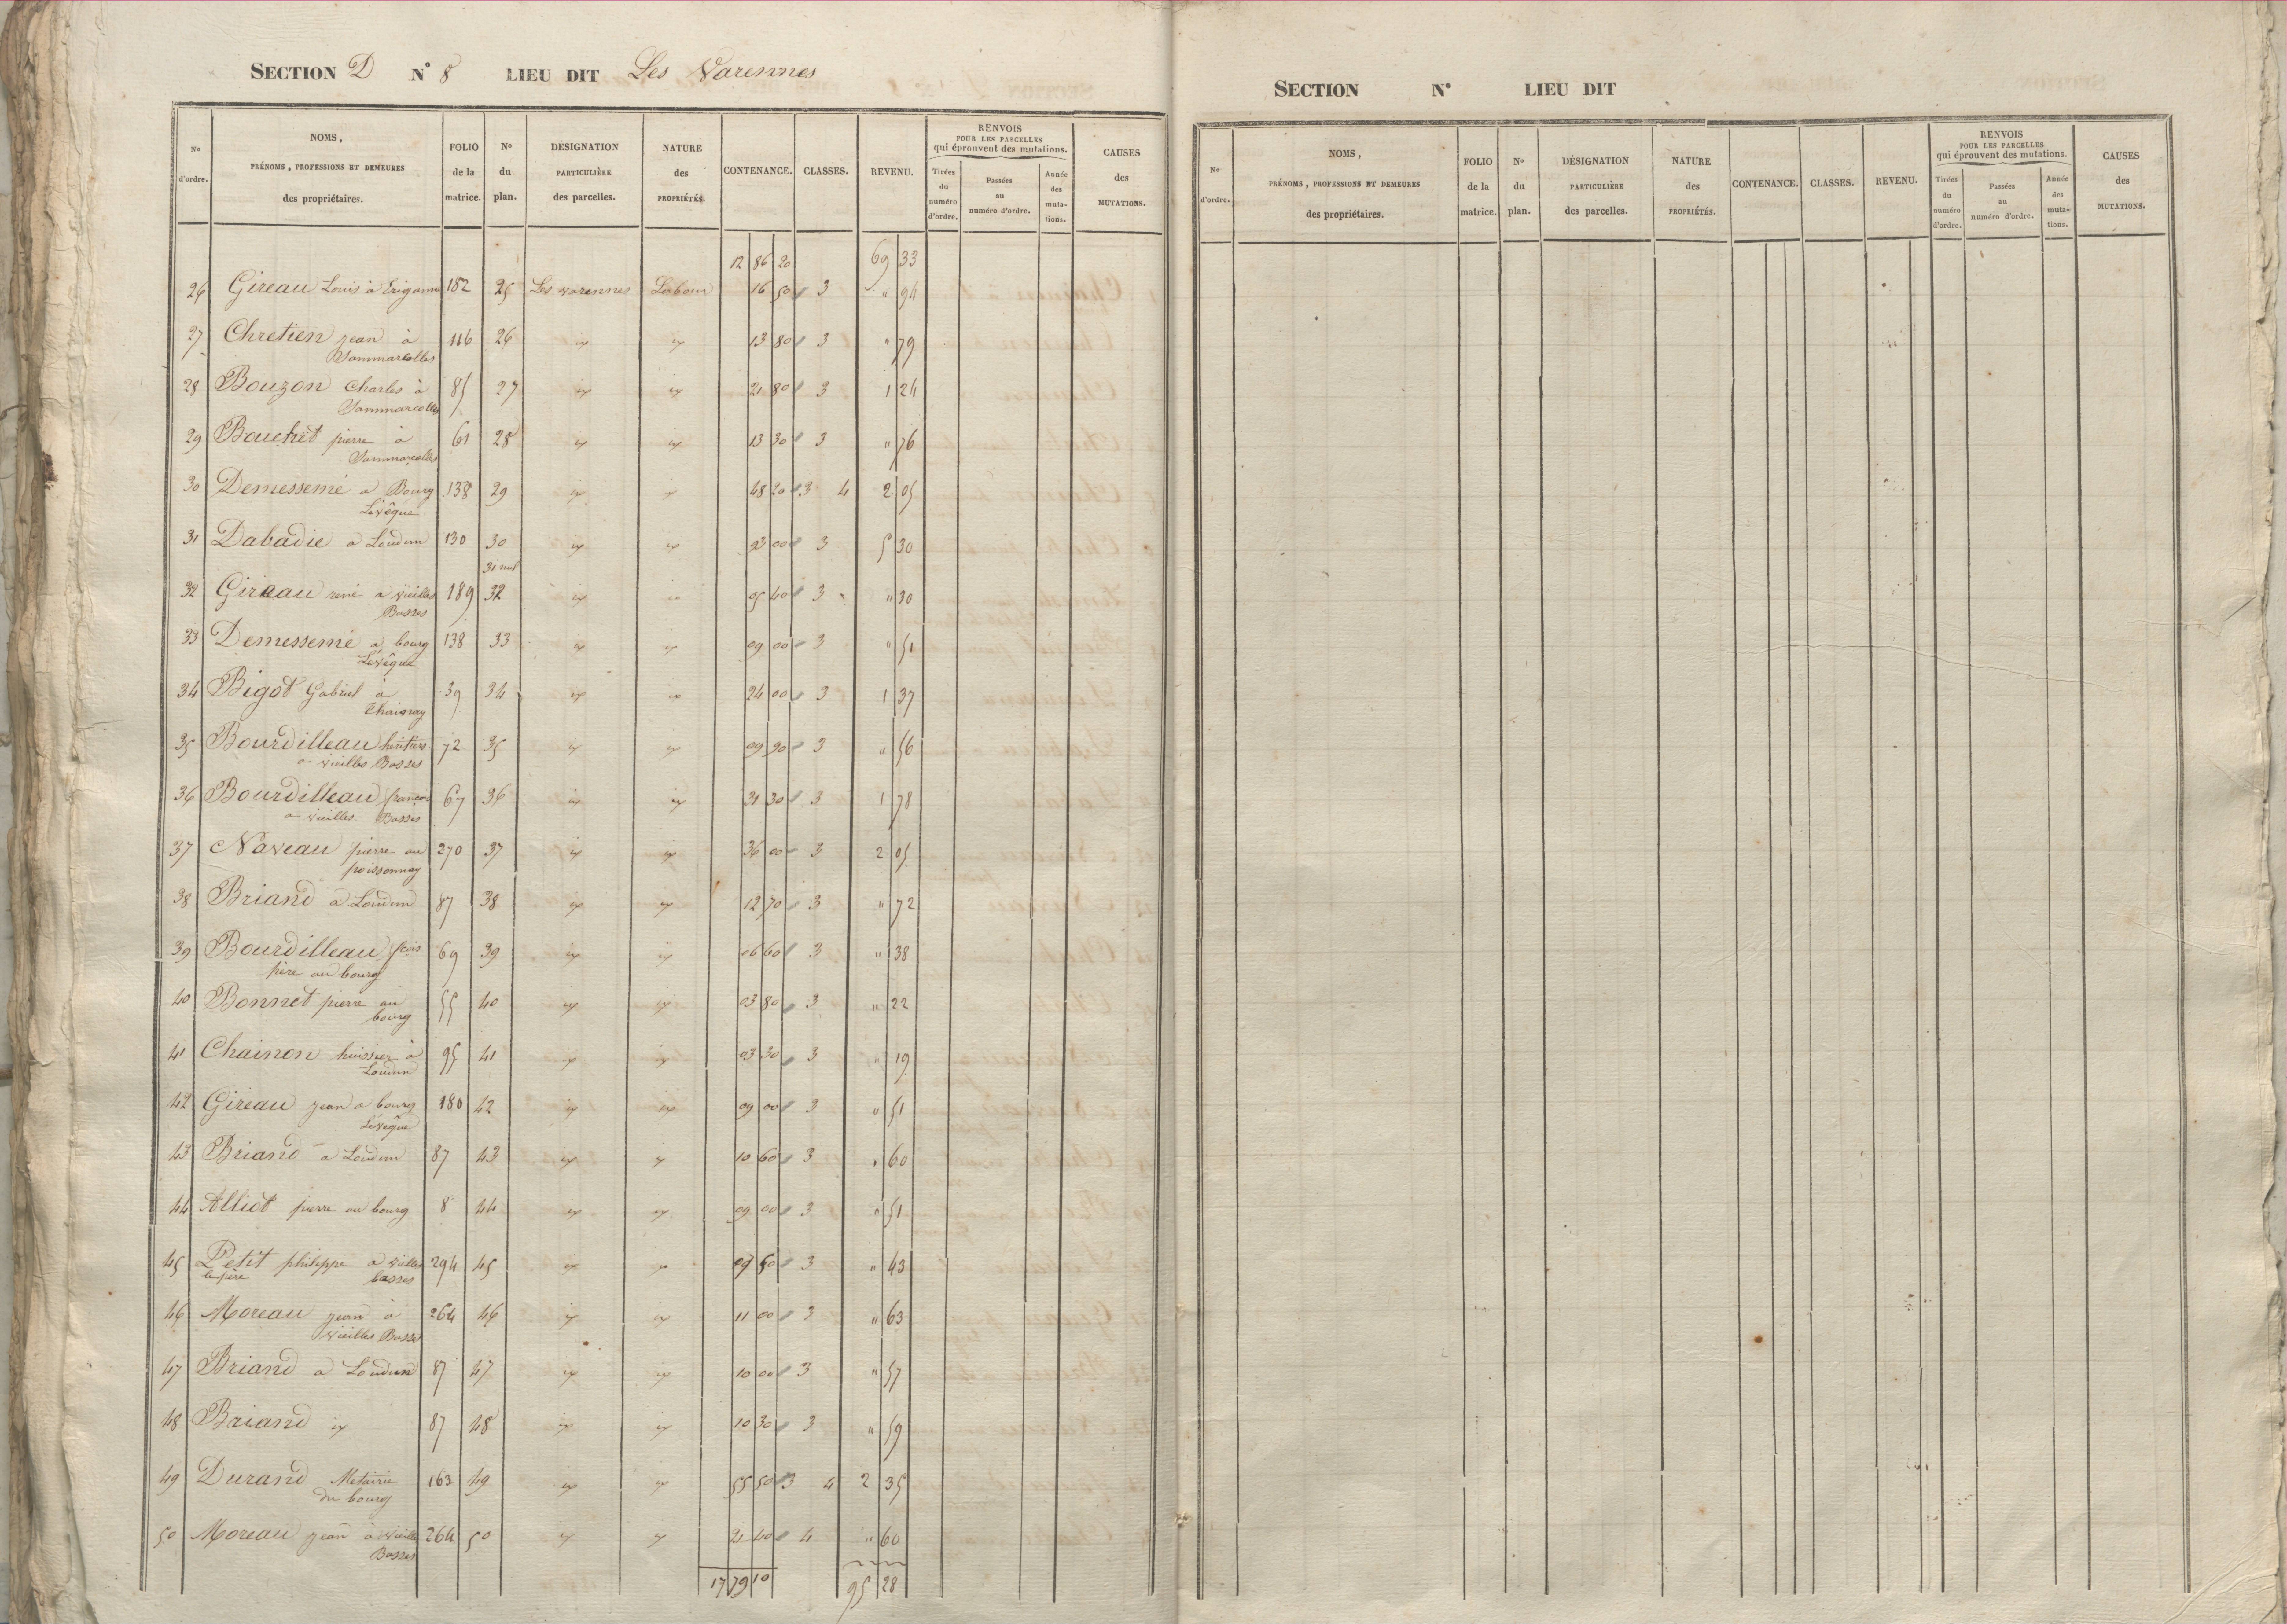 SECTION D N° 8 LIEU DIT Les Varennes
N° d'ordre. NOMS, PRÉNOMS, PROFESSIONS ET DEMEURES des propriétaires. FOLIO de la matrice. N° du plan. DÉSIGNATION PARTICULIÈRE des parcelles. NATURE des PROPRIÉTÉS. CONTENANCE. CLASSES. REVENU. RENVOIS POUR LES PARCELLES qui éprouvent des mutations. Tirées du numéro d'ordre. Passées au numéro d'ordre. Année des muta-tions. CAUSES des MUTATIONS.
12 86 20 69 33
26 Gireau Louis à 182 25 Les varennes Labour 16 50 3 " 94
27 Chretien jean à 116 26 id id 13 80 3 " 79
Sammarcolles
28 Bouzon Charles à 85 27 id id 21 80 3 1 24
Sammarcolles
29 Bouchet pierre à 61 28 id id 13 30 3 " 76
Sammarcolles
30 Demessemé a Bourg 138 29 id id 48 20 3 4 2 05
Lévêque
31 Dabadie a Loudun 130 30 id id 93 00 3 5 30
31 nul
32 Gireau rené a vieilles 189 32 id id 05 40 3 " 30
Basses
33 Demessemé a bourg 138 33 id id 09 00 3 " 51
Lévêque
34 Bigot Gabriel à 39 34 id id 24 00 3 1 37
35 Bourdilleau héritiers 72 35 id id 09 90 3 " 56
a vieilles Basses
36 Bourdilleau françois 67 36 id id 31 30 3 1 78
a vieilles Basses
37 Naveau pierre au 270 37 id id 36 00 3 2 05
poissonnay
38 Briand a Loudun 87 38 id id 12 70 3 " 72
39 Bourdilleau fcois 69 39 id id 06 60 3 " 38
père au bourg
40 Bonnet pierre au 55 40 id id 03 80 3 " 22
bourg
41 Chainon huissier à 95 41 id id 03 30 3 " 19
Loudun
42 Gireau jean a bourg 180 42 id id 09 00 3 " 51
Lévêque
43 Briand a Loudun 87 43 id id 10 60 3 " 60
44 Alliot pierre au bourg 8 44 id id 09 00 3 " 51
45 Petit philippe a vielles 294 45 id id 07 50 3 " 43
le père basses
46 Moreau jean à 264 46 id id 11 00 3 " 63
vieilles Basses
47 Briand a Loudun 87 47 id id 10 00 3 " 57
48 Briand id 87 48 id id 10 30 3 " 59
49 Durand Métairie 163 49 id id 55 50 3 4 2 35
du bourg
50 Moreau jean à vieilles 264 50 id id 21 40 4 " 60
Basses
17 79 10 95 28
SECTION N° LIEU DIT
N° d'ordre. NOMS, PRÉNOMS, PROFESSIONS ET DEMEURES des propriétaires. FOLIO de la matrice. N° du plan. DÉSIGNATION PARTICULIÈRE des parcelles. NATURE des PROPRIÉTÉS. CONTENANCE. CLASSES. REVENU. RENVOIS POUR LES PARCELLES qui éprouvent des mutations. Tirées du numéro d'ordre. Passées au numéro d'ordre. Année des muta-tions. CAUSES des MUTATIONS.